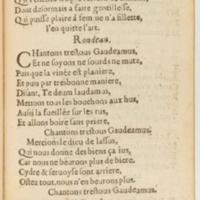 Dont dzormais a faire gentillesse,
Qui puisse plaire a fem ne n'a fillette,
l'en quitte l'art.
Rondeau.
CHantons trestous Gaudeamus,
Et ne soyons ne sourds ne muts,
Puis que la vinée est planiere,
Et puis par tresbonne maniere,
Disant, Te deum laudamus,
Mettons tous les bouchons aux hus,
Aussi la fueillée sur les rus,
Et allons boire sans priere,
Chantons trestous Gaudeamus.
Mercions le dieu de lassus,
Qui nous donne des biens ça jus,
Car nous ne beurons plus de biere.
Cydre & seruoyse sont arriere,
Ostez tout, nous n'en beurons plus.
Chantons trestous Gaudeamus.